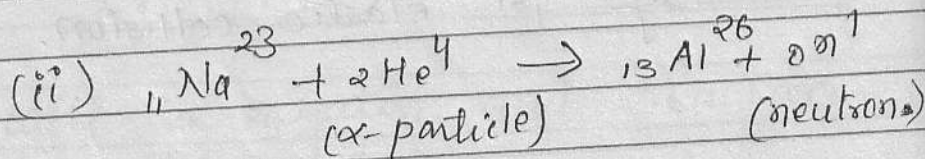 (ii) ₁₁Na²³ + ₂He⁴ → ₁₃Al²⁶ + ₀n¹
(α-particle) (neutron)